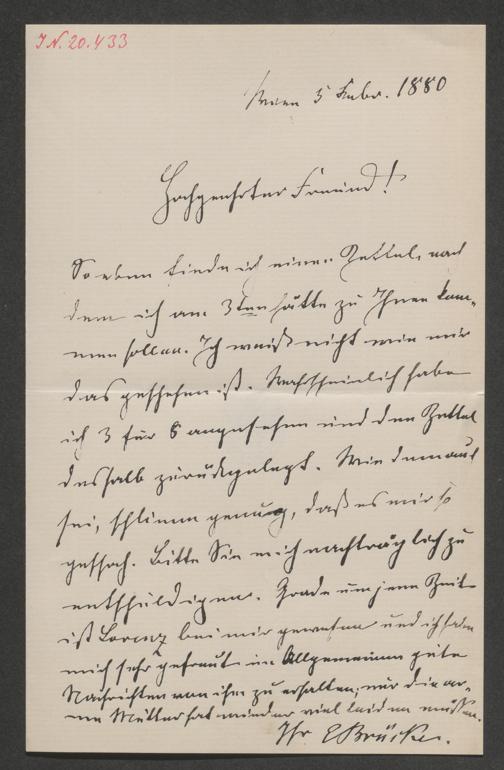 I.N. 20.433
Wien 5 Febr. 1880
Hochgeehrter Freund!
So eben finde ich einen Zettel, nach
dem ich am 3ten hätte zu Ihnen kom-
men sollen. Ich weiß nicht wie mir
das geschehen ist. Wahrscheinlich habe
ich 3 für 8 angesehen und den Zettel
deshalb zurückgelegt. Wie dem auch
sei, schlimm genug, daß es mir so
geschah. Bitte Sie mich nachträglich zu
entschuldigen. Grade um jene Zeit
ist Lorenz bei mir gewesen und ich habe
mich sehr gefreut im Allgemeinen gute
Nachrichten von ihm zu erhalten; nur die ar-
me Mutter hat wieder viel leiden müssen.
Ihr EBrücke.